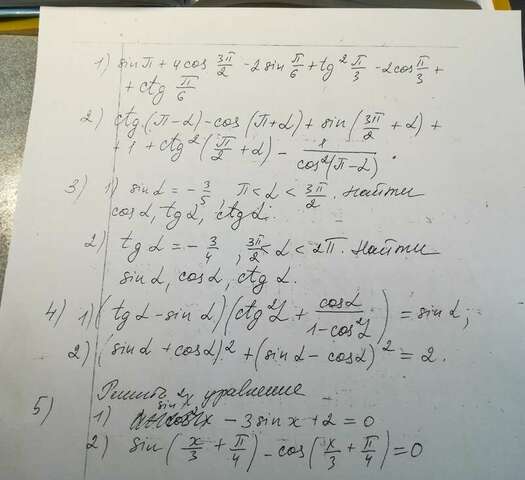 1) sin π + 4cos 3π/2 - 2sin π/6 + tg² π/3 - 2cos π/3 +
+ ctg π/6
2) ctg(π-α) - cos(π+α) + sin(3π/2 + α) +
+ 1 + ctg²(π/2 + α) - 1/cos²(π-α).
3) 1) sin α = - 3/5, π < α < 3π/2. Найти
cos α, tg α, ctg α.
2) tg α = - 3/4, 3π/2 < α < 2π. Найти
sin α, cos α, ctg α.
4) 1) (tg α - sin α)(ctg²α + cos α/1-cos²α) = sin α;
2) (sin α + cos α)² + (sin α - cos α)² = 2.
5) Решить уравнение
1) sin²x - 3 sin x + 2 = 0
2) sin(x/3 + π/4) - cos(x/3 + π/4) = 0